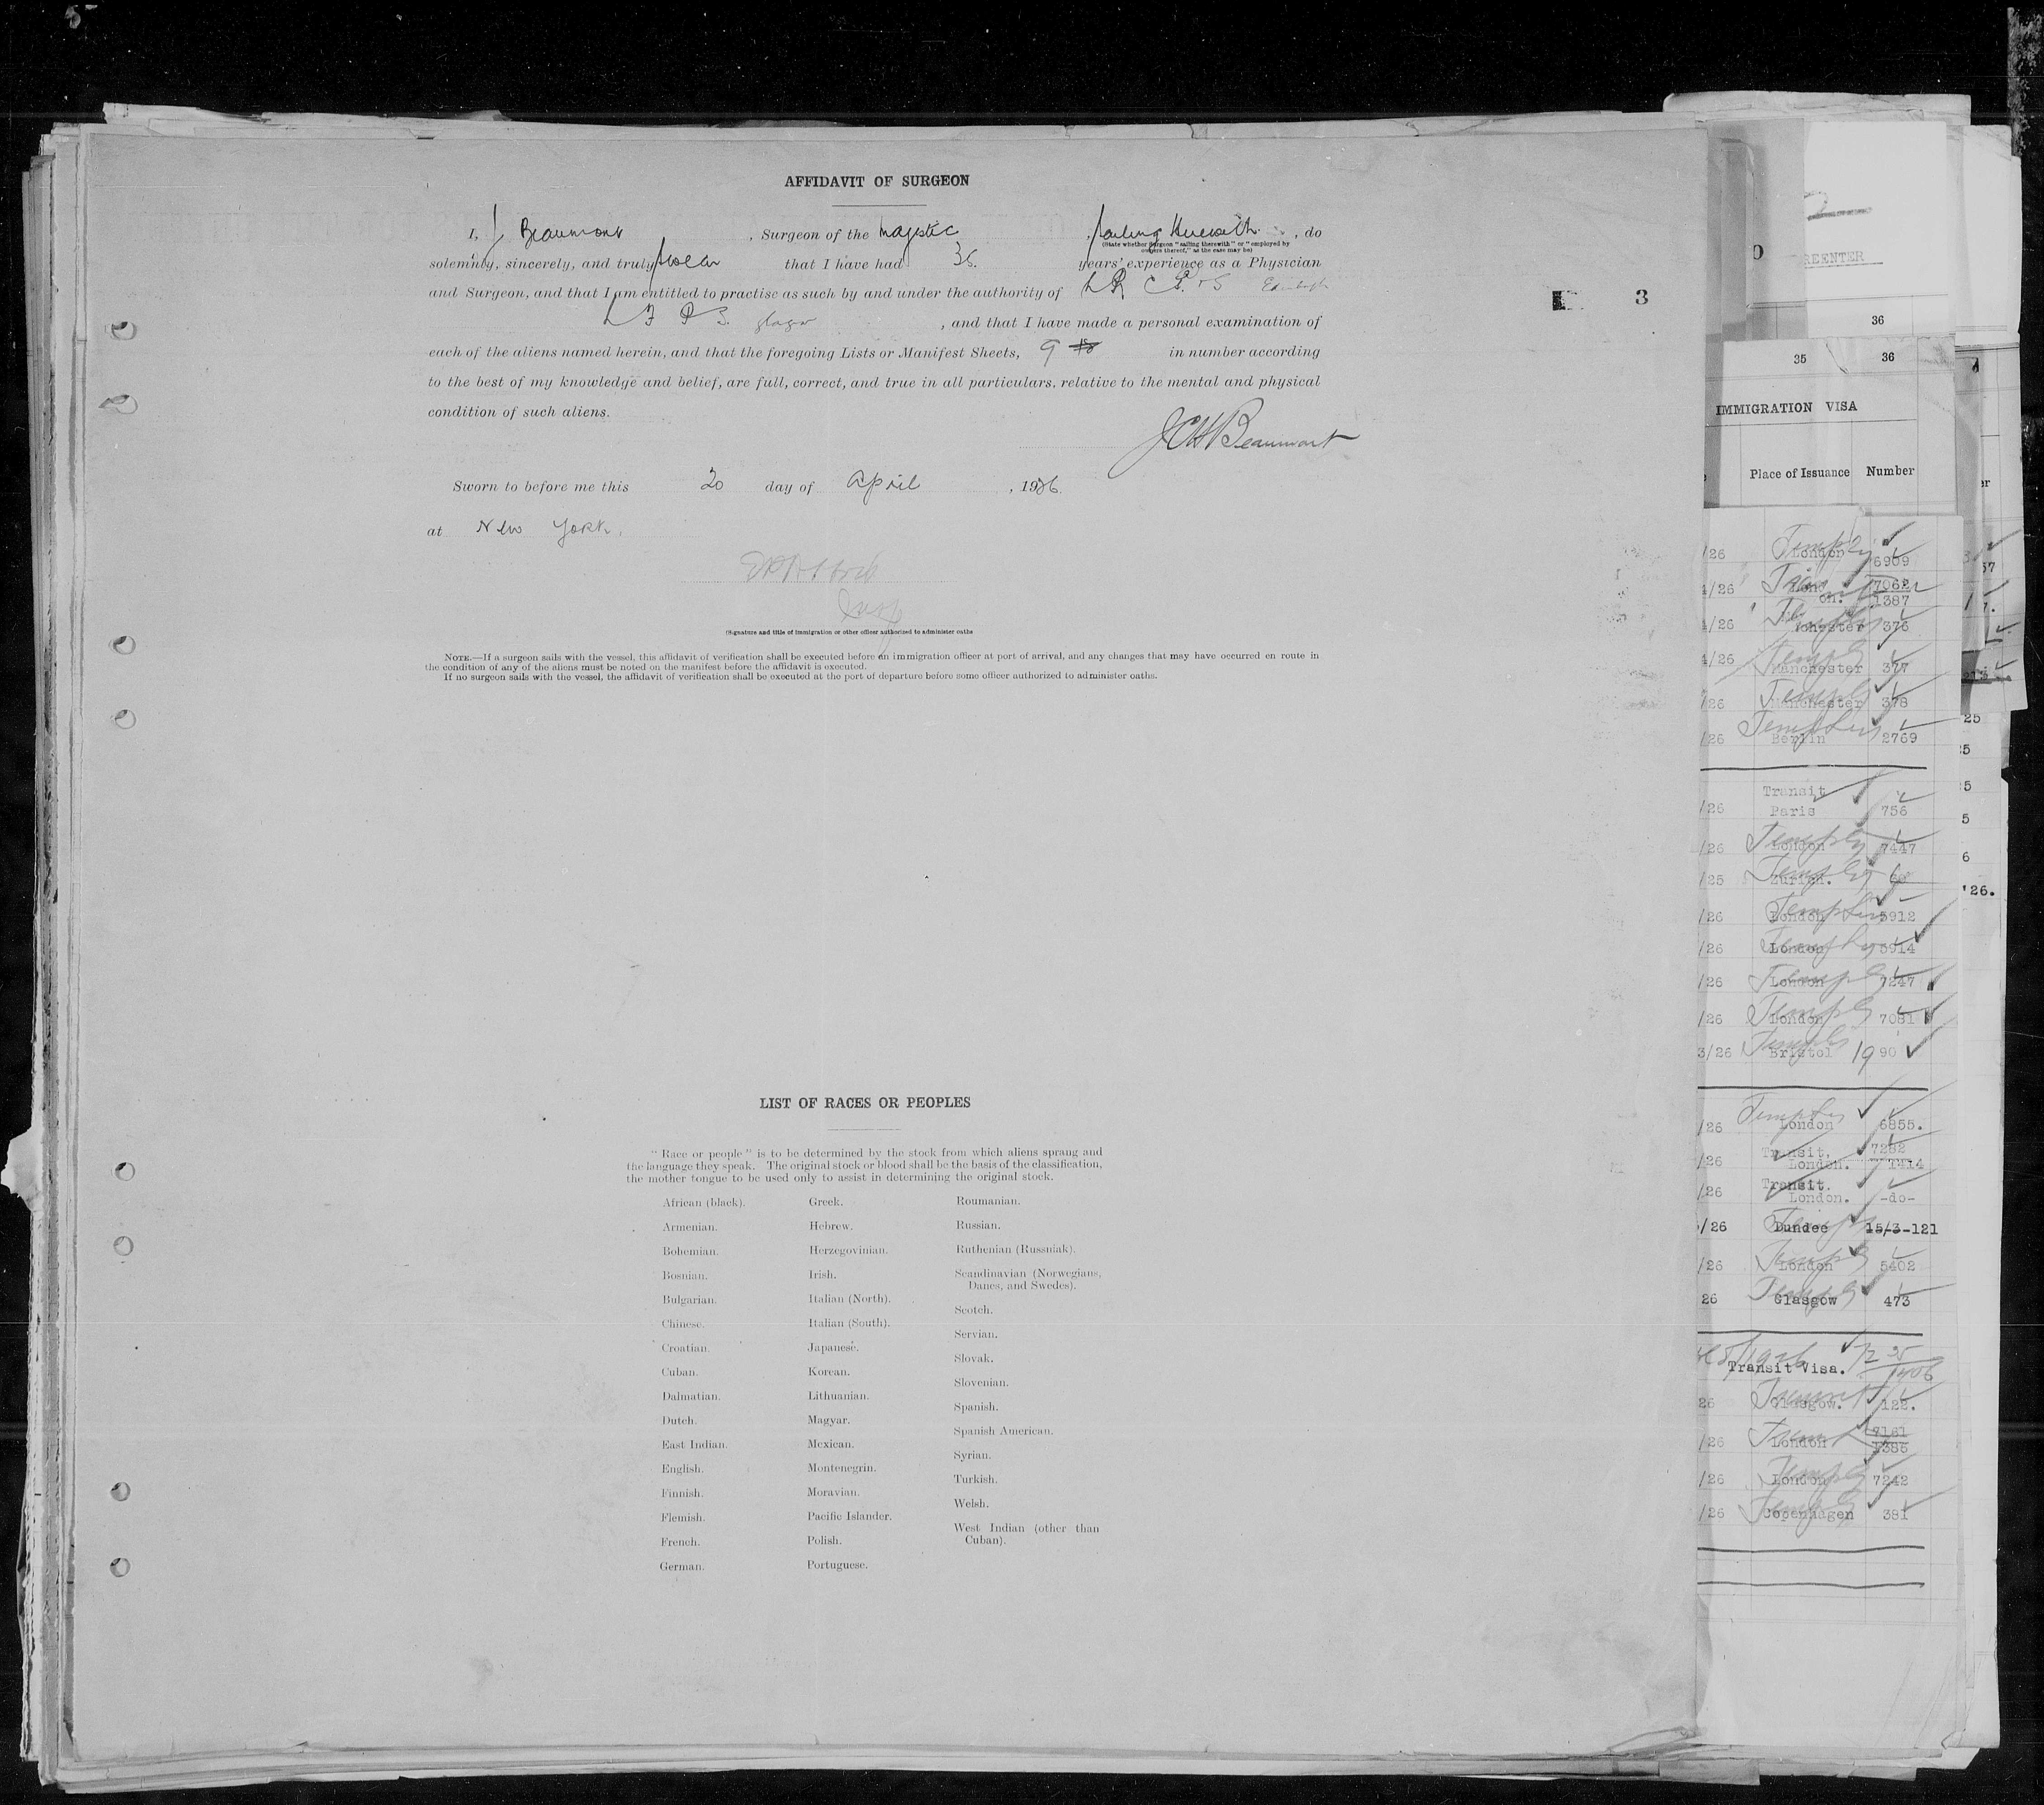 AFFIDAVIT OF SURGEON
I, J Beaumont, Surgeon of the Majestic, sailing therewith, do
(State whether Surgeon "sailing therewith" or "employed by
owners thereof," as the case may be)
solemnly, sincerely, and truly swear that I have had 36. years' experience as a Physician
and Surgeon, and that I am entitled to practise as such by and under the authority of L R C P. & S Edinburgh
L F P S. Glasgow, and that I have made a personal examination of
each of the aliens named herein, and that the foregoing Lists or Manifest Sheets, 9 in number according
to the best of my knowledge and belief, are full, correct, and true in all particulars, relative to the mental and physical
condition of such aliens.
JCHBeaumont
Sworn to before me this 20 day of April, 1926.
at New York.
Insp
(Signature and title of immigration or other officer authorized to administer oaths
NOTE.—If a surgeon sails with the vessel, this affidavit of verification shall be executed before an immigration officer at port of arrival, and any changes that may have occurred en route in
the condition of any of the aliens must be noted on the manifest before the affidavit is executed.
If no surgeon sails with the vessel, the affidavit of verification shall be executed at the port of departure before some officer authorized to administer oaths.
LIST OF RACES OR PEOPLES
"Race or people" is to be determined by the stock from which aliens sprang and
the language they speak. The original stock or blood shall be the basis of the classification,
the mother tongue to be used only to assist in determining the original stock.
African (black).
Armenian.
Bohemian.
Bosnian.
Bulgarian.
Chinese.
Croatian.
Cuban.
Dalmatian.
Dutch.
East Indian.
English.
Finnish.
Flemish.
French.
German.
Greek.
Hebrew.
Herzegovinian.
Irish.
Italian (North).
Italian (South).
Japanese.
Korean.
Lithuanian.
Magyar.
Mexican.
Montenegrin.
Moravian.
Pacific Islander.
Polish.
Portuguese.
Roumanian.
Russian.
Ruthenian (Russniak).
Scandinavian (Norwegians,
Danes, and Swedes).
Scotch.
Servian.
Slovak.
Slovenian.
Spanish.
Spanish American.
Syrian.
Turkish.
Welsh.
West Indian (other than
Cuban).
3
REENTER
36
35 36
IMMIGRATION VISA
Place of Issuance Number
/26 London 6909
4/26 7062
1387
4/26 chester 376
4/26 Manchester 377
/26 Manchester 378
/26 Berlin 2769
Transit
/26 Paris 756
/26 London 7447
/25 Zurich.
/26 London 5912
/26 London 5914
/26 London 7247
/26 London 7081
3/26 Bristol 1990
/26 London 6855.
Transit. 7282
/26 London. 1414
Transit.
/26 London. -do-
/26 Dundee 15/3-121
/26 London 5402
26 Glasgow 473
Transit Visa.
26 Glasgow. 122.
7161
/26 London 1386
/26 London 7242
/26 Copenhagen 381
25
'26.